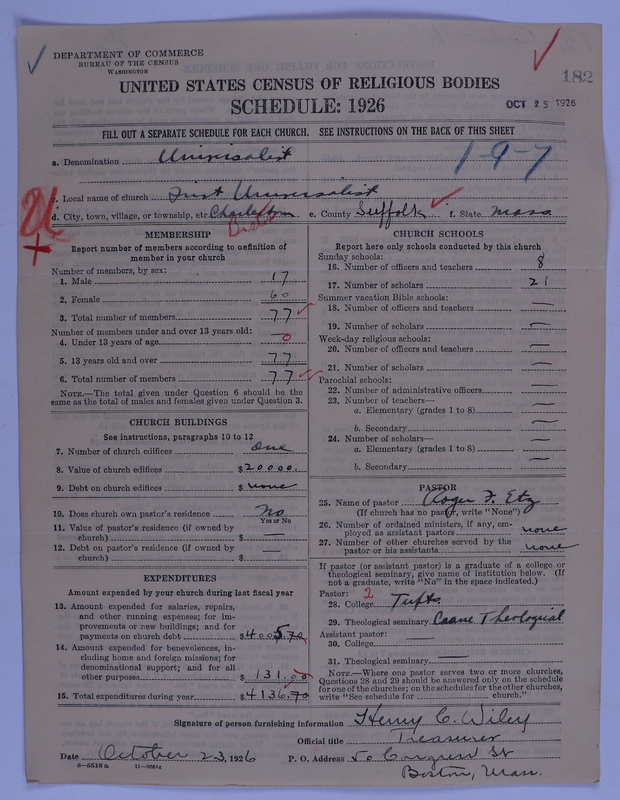 DEPARTMENT OF COMMERCE
BUREAU OF THE CENSUS
WASHINGTON
182
UNITED STATES CENSUS OF RELIGIOUS BODIES
SCHEDULE: 1926
OCT 25 1926
FILL OUT A SEPARATE SCHEDULE FOR EACH CHURCH. SEE INSTRUCTIONS ON THE BACK OF THIS SHEET
a. Denomination Universalist
1-9-7
c. Local name of church First Universalist
d. City, town, village, or township, etc. Charlestown e. County Suffolk f. State Mass
MEMBERSHIP
Report number of members according to definition of
member in your church
Number of members, by sex:
1. Male 17
2. Female 60
3. Total number of members 77
Number of members under and over 13 years old:
4. Under 13 years of age 0
5. 13 years old and over 77
6. Total number of members 77
NOTE.—The total given under Question 6 should be
the same as the total of males and females given under Question 3.
CHURCH BUILDINGS
See instructions, paragraphs 10 to 12
7. Number of church edifices one
8. Value of church edifices $20000.
9. Debt on church edifices $none
10. Does church own pastor's residence No
Yes or No
11. Value of pastor's residence (if owned by
church) $ —
12. Debt on pastor's residence (if owned by
church) $ —
EXPENDITURES
Amount expended by your church during last fiscal year
13. Amount expended for salaries, repairs,
and other running expenses; for im-
provements or new buildings; and for
payments on church debt $4005.70
14. Amount expended for benevolences, in-
cluding home and foreign missions; for
denominational support; and for all
other purposes $131.00
15. Total expenditures during year $4136.70
CHURCH SCHOOLS
Report here only schools conducted by this church
Sunday schools:
16. Number of officers and teachers 8
17. Number of scholars 21
Summer vacation Bible schools:
18. Number of officers and teachers —
19. Number of scholars —
Week-day religious schools:
20. Number of officers and teachers —
21. Number of scholars —
Parochial schools:
22. Number of administrative officers —
23. Number of teachers—
a. Elementary (grades 1 to 8) —
b. Secondary —
24. Number of scholars—
a. Elementary (grades 1 to 8) —
b. Secondary —
PASTOR
25. Name of pastor Roger F. Etz
(If church has no pastor, write "None")
26. Number of ordained ministers, if any, em-
ployed as assistant pastors none
27. Number of other churches served by the
pastor or his assistants none
If pastor (or assistant pastor) is a graduate of a college or
theological seminary, give name of institution below. (If
not a graduate, write "No" in the space indicated.)
Pastor: 2
28. College Tufts
29. Theological seminary Crane Theological
Assistant pastor:
30. College —
31. Theological seminary —
NOTE.—Where one pastor serves two or more churches,
Questions 28 and 29 should be answered only on the schedule
for one of the churches; on the schedules for the other churches,
write "See schedule for church."
Signature of person furnishing information Henry C. Wiley
Official title Treasurer
Date October 23, 1926 P. O. Address 50 Congress St
8-5518 a
Boston, Mass.